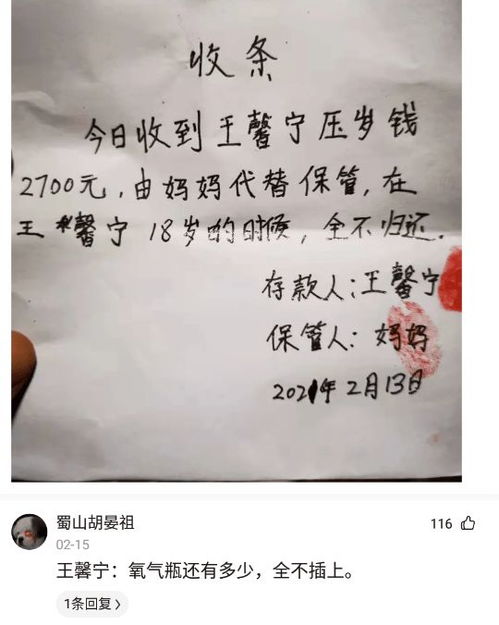 收条
今日收到王馨宁压岁钱
2700元，由妈妈代替保管，在
王馨宁18岁的时候，全不归还.
存款人：王馨宁
保管人：妈妈
2021年2月13日
蜀山胡晏祖
116
02-15
王馨宁：氧气瓶还有多少，全不插上。
1条回复>